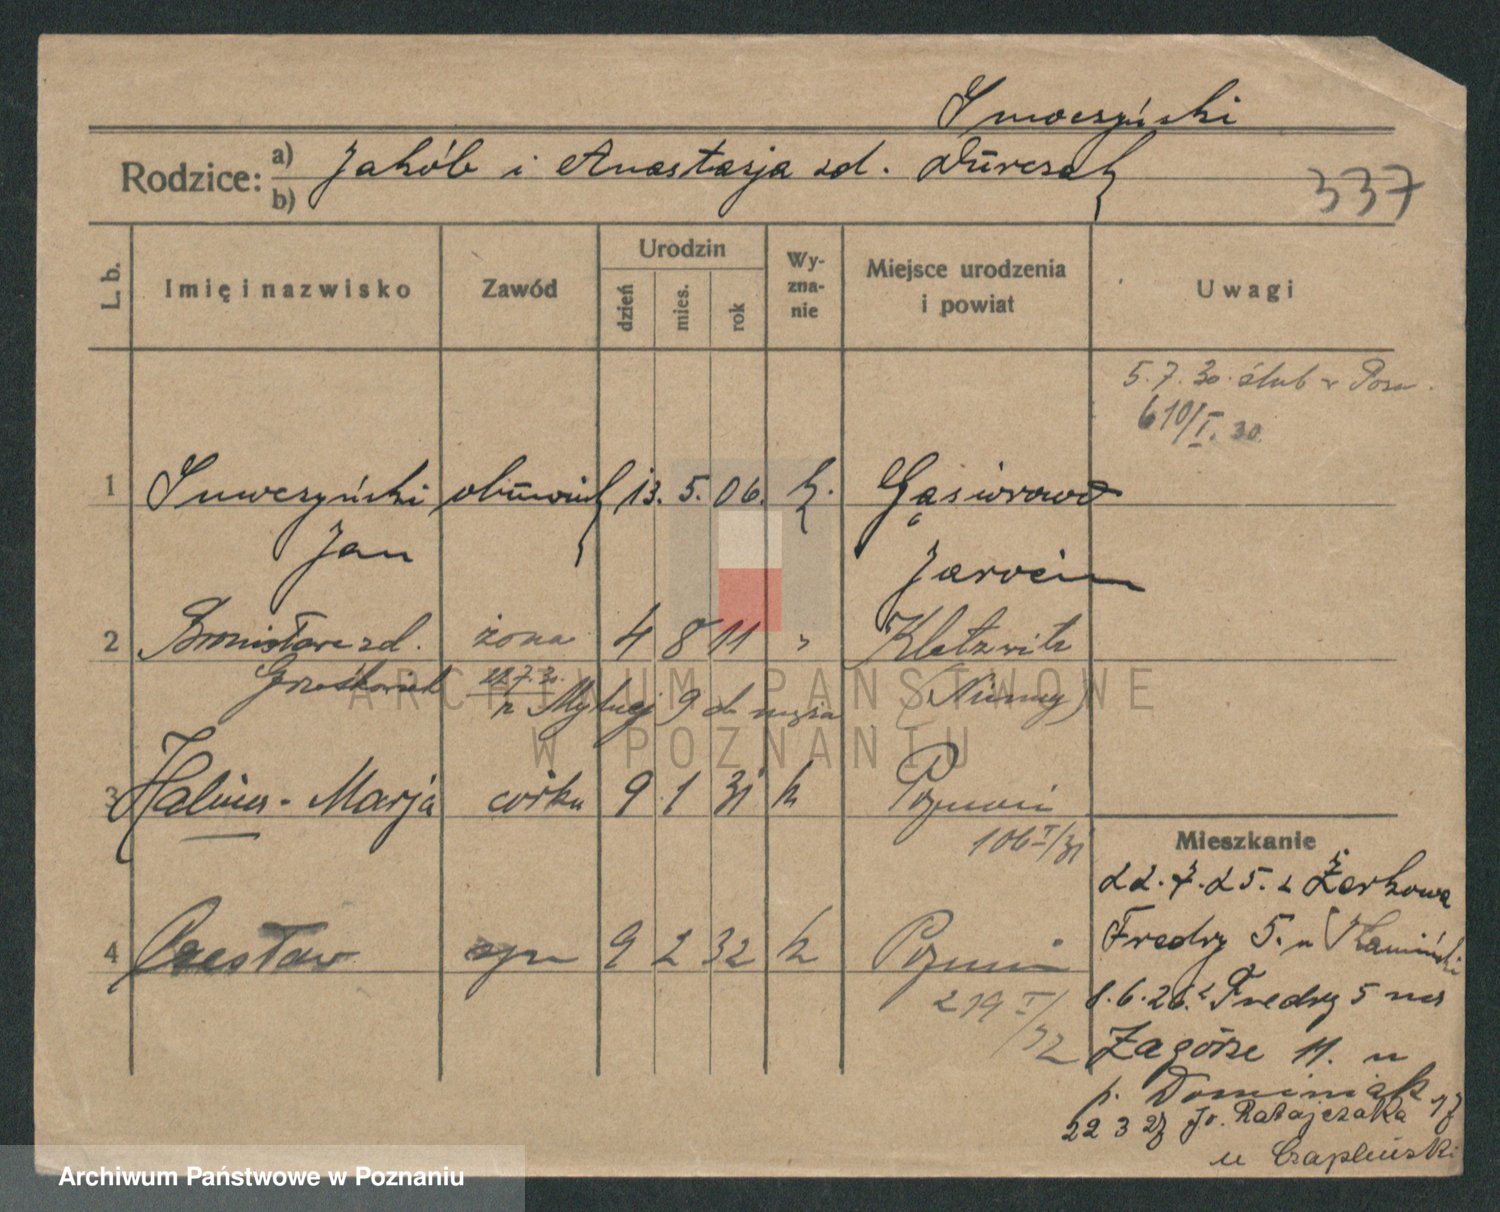 Smoczyński
Rodzice: a) Jakób i Anastazja zd. Durczak
b)
337
L. b. Imię i nazwisko Zawód Urodzin dzień mies. rok Wyznanie Miejsce urodzenia i powiat Uwagi
5.7.30. ślub w Pozn.
610/I. 30.
1 Smoczyński 13. 5. 06. k. Gąsiorowo
Jan Jarocin
2 Bronisława zd. żona 4 8 11 " Kletzwitz
Grześkowiak 22.7.30. (Niemcy)
z 9 do męża
3 Halina - Marja córka 9 1 31 k Poznań
106 I/31
Mieszkanie
22.7.25. z Żerkowa
4 Czesław syn 9 2 32 k Poznań
Fredry 5. u Kamiński
219 I/32
1.6.26. z Fredry 5 na
Zagórze 11. u
p. Dominiak
22 3 27 Fr. Ratajczaka 17
u Czapliński
ARCHIWUM PAŃSTWOWE
W POZNANIU
Archiwum Państwowe w Poznaniu